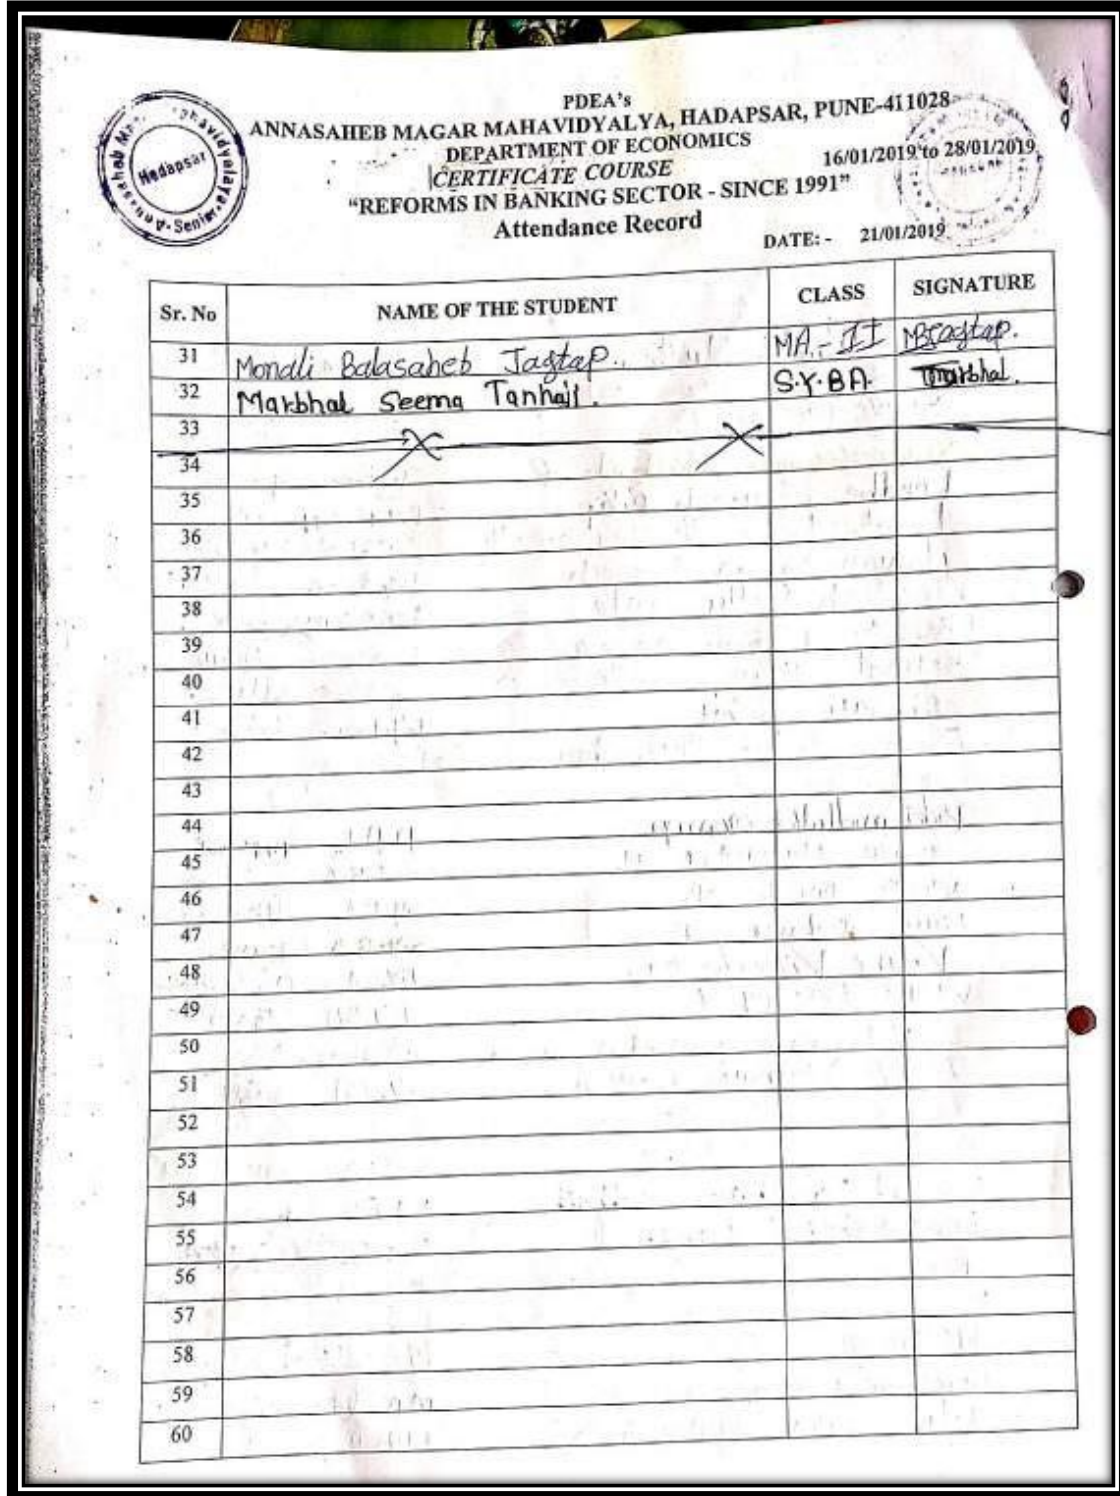 PDEA's
ANNASAHEB MAGAR MAHAVIDYALYA, HADAPSAR, PUNE-411028
DEPARTMENT OF ECONOMICS
CERTIFICATE COURSE 16/01/2019 to 28/01/2019
"REFORMS IN BANKING SECTOR - SINCE 1991"
Attendance Record
DATE: - 21/01/2019
Hadapsar
Sr. No NAME OF THE STUDENT CLASS SIGNATURE
31 Monali Balasaheb Jagtap. MA-II MBJagtap.
32 Markbhal Seema Tanhaji. S.Y.BA.
33
34
35
36
37
38
39
40
41
42
43
44
45
46
47
48
49
50
51
52
53
54
55
56
57
58
59
60